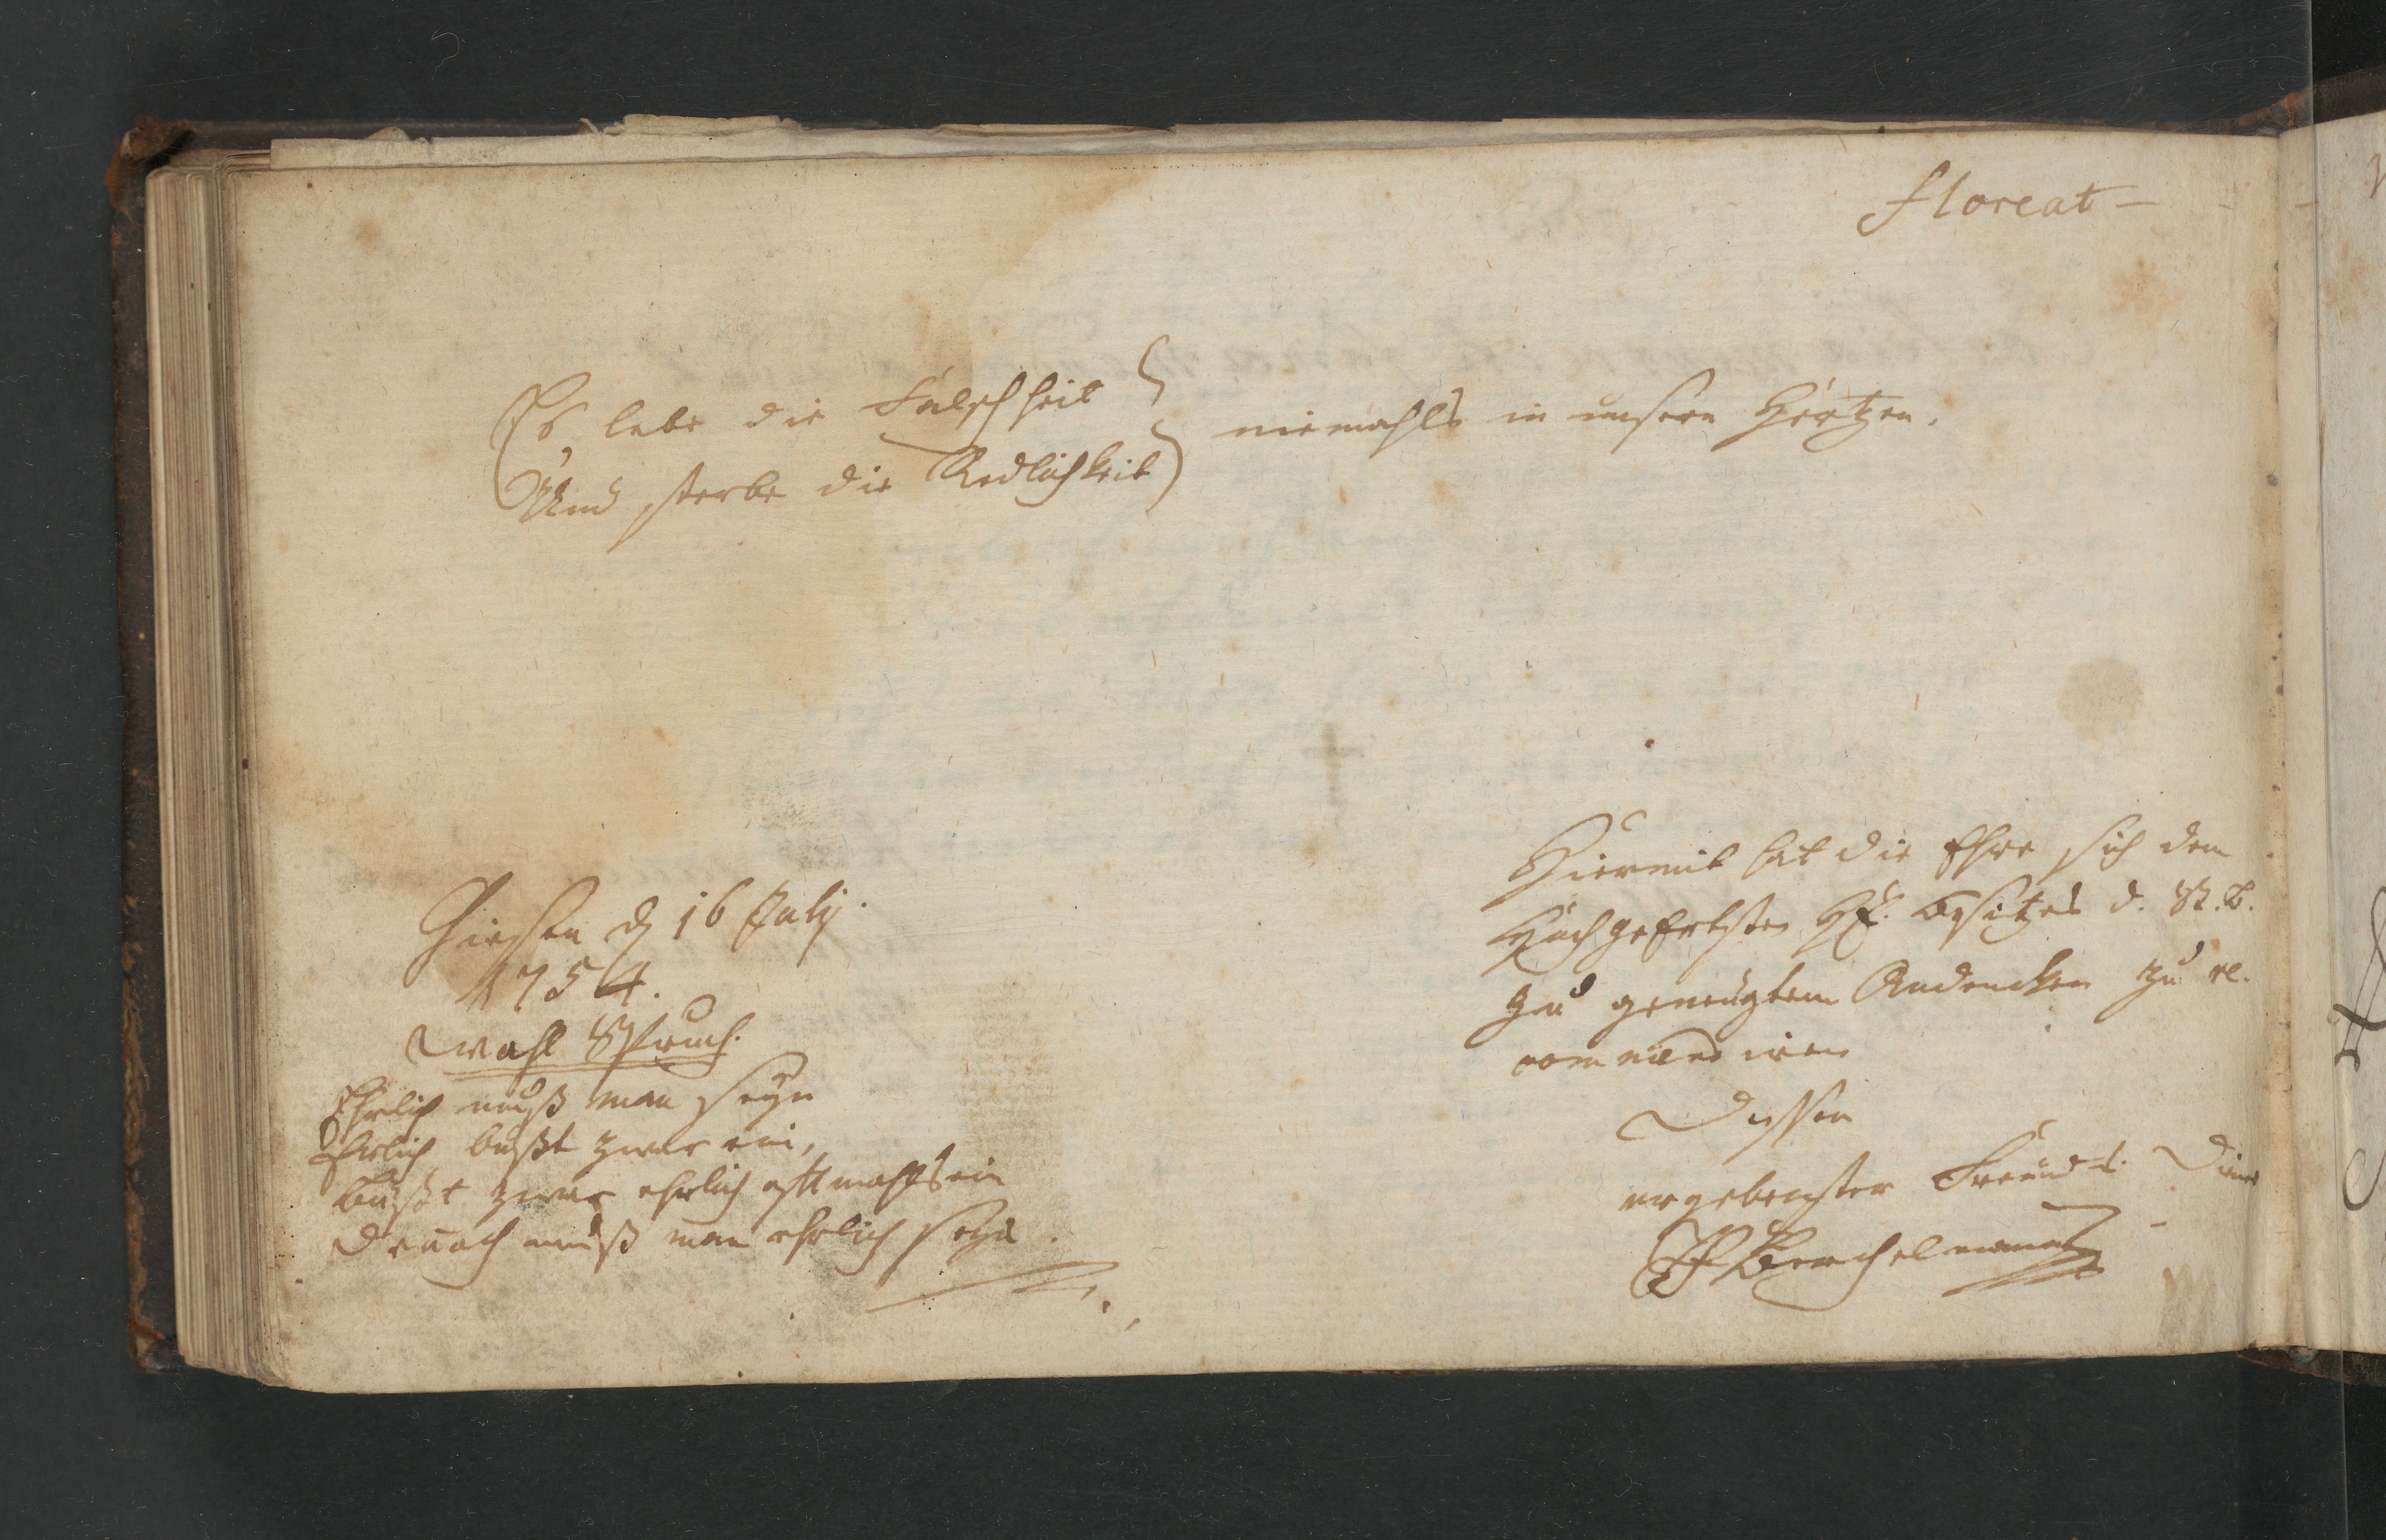 floreat - - -
Es lebe die Falschheit } niemahls in unsern Hertzen.
Und sterbe die Redlichkeit
Giessen d 16 July.
1754.
Wahl Spruch.
Ehrlich muß man seyn
Ehrlich büßt zwar ein,
büßt zwar ehrlich offtmahls ein
Dennoch muß man ehrlich seyn.
Hiermit hat die Ehre sich dem
Hochgeehrtesten H. Besitzer d. St. B.
zu geneigtem Andencken zu re-
commendiren
Dessen
ergebenster Freund u. Diener
Berchelmann